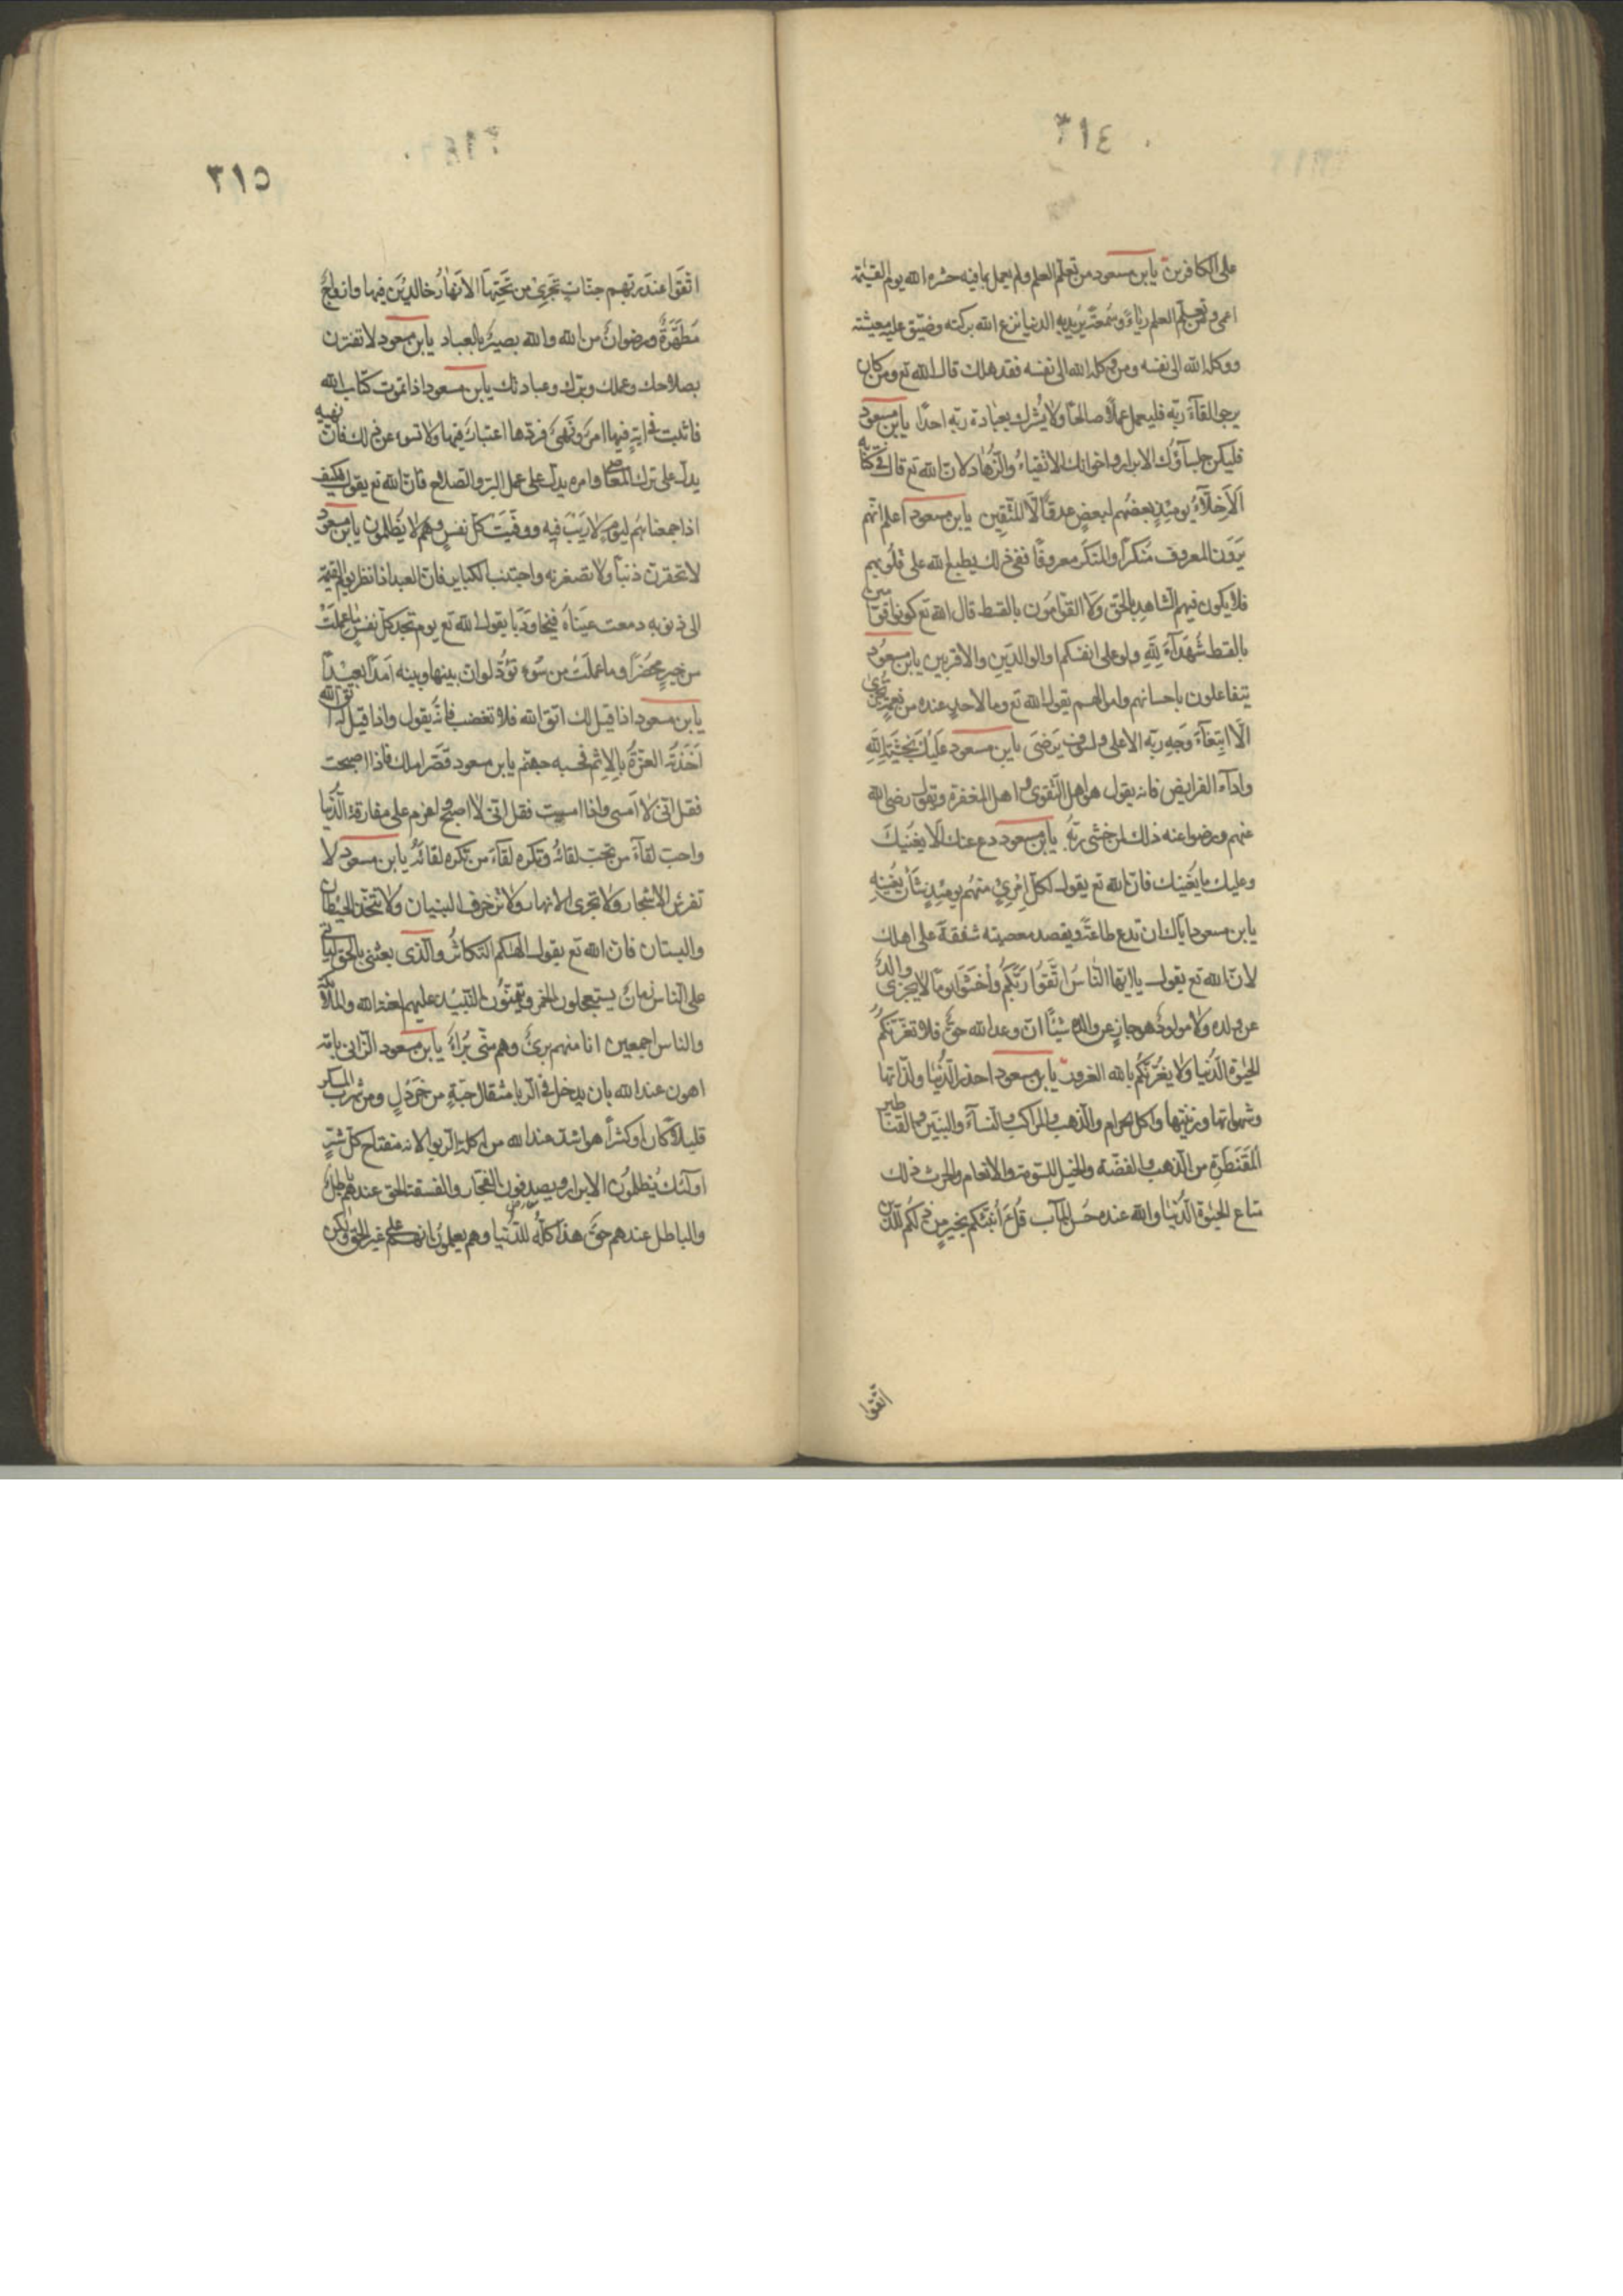 ٣١٤
على الكافرين يابن مسعود من تعلم العلم ولم يعمل بما فيه حشره الله يوم القيٰمة
اعمى ومن تعلم العلم رئاءً وسمعةً يريد به الدنيا نزع الله بركته وضيّق عليه معيشته
ووكله الله الى نفسه ومن وكله الله الى نفسه فقد هلك قال الله تع ومن كان
يرجو القآءَ ربّه فليعمل عملًا صالحًا ولا يُشرك بعبادة ربّه احدًا يابن مسعود
فليكن جلسآؤك الابرار واخوانك الاتقياءُ والزُّهاد لانّ الله تع قال في كتابه
اَلاَخِلّآءُ يومئِذٍ بعضُهم لبعضٍ عدوّ الّا المتّقِين يابن مسعود اعلم انّهم
يَرَوْن المعروف مُنكرًا والمنكَر معروفًا ففي ذلك يطبع الله على قلُوبهم
فلا يكون فيهم الشاهد بالحقّ وَلا القوّامُون بالقسط قال الله تع كونوا قوّامين
بالقسط شُهَدَآءَ لِلّٰهِ ولو على انفسكم او الوالدَين والاقربين يابن مسعُود
يتفاضلون باحسابهم واموالهم يقول الله تع وما لاحدٍ عنده من نعمةٍ تُجزى
الّا ابتِغآءَ وَجهِ ربّه الاعلى ولسوف يَرضى يابن مسعود عليكَ بخشيَةِ اللّٰهِ
وادآء الفرايض فانه يقول هو اهل التّقوى واهل المغفرة ويقول رضى الله
عنهم ورضوا عنه ذلك لمن خشى ربّهُ يابن مسعود دع عنك ما لا يغنيكَ
وعليك ما يُغنيك فانّ الله تع يقول لكلّ امْرِئٍ منهُم يومئِذٍ شأن يُغنِيه
يابن مسعود ايّاك ان تدع طاعَةً وتقصد معصيته شفقةً على اهلك
لانّ الله تع يقول يا ايّها النّاسُ اتّقُوا رَبّكُم واخشَوْا يومًا لا يجزى والدٌ
عن ولده ولا مولودٌ هو جازٍ عن والده شيئًا انّ وعد الله حقّ فلا تغرّنكمُ
الحيٰوة الدُّنيا ولا يغُرّنكُم بالله الغرور يابن مسعود احذر الدُّنيا ولذّاتها
وشهواتها وزينتها واكل الحرام والذهب والمراكب والنسآءَ والبنين والقناطير
المقَنطرة من الذهب والفضّة والخيل المسومة والانعام والحرث ذلك
متاع الحيٰوة الدُّنيا والله عنده حُسن المآب قُلْ أَؤُنبّئكم بخيرٍ من ذلكم للّذين
اتّقوا
٣١٥
اتَّقَوا عندَ ربّهم جنّات تَجْرِى من تَحْتِهَا الاَنهارُ خالدين فيها وازواجٌ
مُطَهَّرَةٌ ورضوانٌ من الله والله بصيرٌ بالعباد يابن مسعود لا تغترن
بصلاحك وعملك وبرّك وعبادتك يابن مسعود اذا تلوت كتاب الله
فاتيت في اية فيها امرٌ ونهىٌ فردّها اعتبارًا فيها ولا تسوء عن ذلك فانّ نهيه
يدلّ على ترك المعاصى وامره يدلّ على عمل البرّ والصّلاح فانّ الله تع يقول فكيف
اذا جمعناهُم ليَومٍ لا ريْبَ فيه ووفّيَت كلّ نفسٍ وهم لا يُظلمون يابن مسعود
لا تحقرنّ ذنبًا ولا تصغرنه واجتنب الكباير فانّ العبد اذا نظر يوم القيٰمة
الى ذنوبه دمعت عيناهُ قيحًا ودَمًا يقول الله تع يوم تجد كلّ نفسٍ ما عملَتْ
من خيرٍ محضرًا وما عملَتْ من سُوء تودّ لو انّ بينها وبينه اَمدًا بعِيدًا
يابن مسعود اذا قيل لك اتّق الله فلا تغضب فانّهُ يقول واذا قيل له اتّق الله
اَخَذَتهُ العزّةُ بالاِثم فحسبه جهنّم يابن مسعود قصّر املك فاذا اصبحت
فقل انّى لا اَمسى واذا امسيت فقل انّى لا اصبح واعزم على مفارقة الدُّنيا
واحبّ لقآءَ من تحبّ لقائهُ وتكره لقآءَ من تكره لقائه يابن مسعود لا
تغرس الاشجار ولا تجرى الانهار ولا تزخرف البنيان ولا تتّخذ الحيطان
والبستان فانّ الله تع يقول الهٰكم التكاثر والّذى بعثنى بالحقّ لياتى
على النّاس زمانٌ يستحلون الخمر ويسمّون النّبيذ عليهم لعنة الله والملائكة
والناس اجمعين انا منهم برئٌ وهم منّى بُرآءُ يابن مسعود الزّانى بامّه
اهون عند الله بان يدخل في الرّبا مثقال حبّةٍ من خَردُلٍ ومن شرب المسكر
قليلاً كان او كثيرًا هو اشدّ عند الله من اكل الرّبوا لانه مفتاح كلّ شرٍّ
اولئك يُظلمُون الابرار ويصدّقون الفجّار والفسقة الحقّ عندهم باطلٌ
والباطل عندهم حقٌّ هذا كلّه للدُّنيا وهم يعلمون انهم على غير الحقّ ولكن